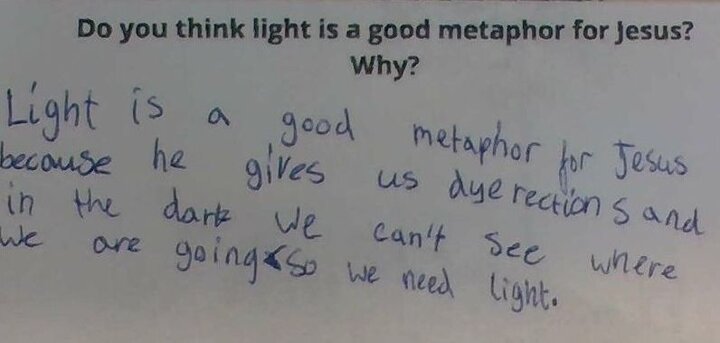 Do you think light is a good metaphor for Jesus?
Why?
Light is a good metaphor for Jesus
because he gives us dyerections and
in the dark we can't see where
we are going so we need light.